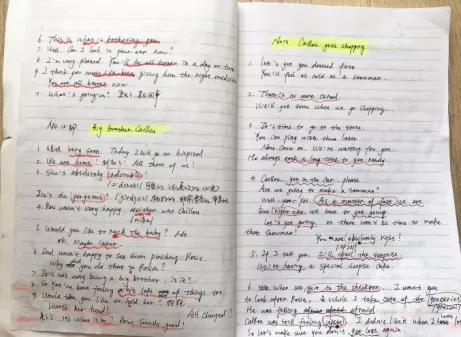 6. This is what is bothering you
7. Well. Can I look in your ear now?
8. I'm very pleased. You'll be all better in a day or two
9. I think you giving him the right medicine
You are all better now.
10. What's going on?
No.12 Big Brother Caillou
1. very soon. Today I will go to hospital
2. We are home! All three of us!
3. She's absolutely adorable!
Isn't she gorgeous!
4. Rosie wasn't very happy neither was Caillou
5. Would you like to rock the baby? No.
Maybe later.
6. Dad wasn't happy to see him pinching Rosie.
Why did you do that to Rosie?
7. It's not easy being a big brother, is it?
8. So you've been taking of things too.
9. Would you like to hold her?
Watch her head!
All changed?
Rosie smells good!
No.13. Caillou goes shopping.
1. Let's get you dressed first
You'll feel as cold as a snowman.
2. There's no more cereal.
We'll get some when we go shopping.
3. It's time to go to the store.
You can play with them later.
Now come on. We're waiting for you.
He always took a long time to get ready.
4. Caillou, get in the car, please.
Are we going to make a snowman?
As a matter of fact we are
right now we have to get going.
Let's get going, or there won't be time to make
that snowman!
You're absolutely right!
5. If I tell you, it'll spoil the surprise.
We're having a special surprise cake.
6. When we get to the checkout. I want you
to look after Rosie, while I take care of the groceries
He was feeling afraid
Caillou was still feeling upset. I didn't like it when I was lost
So let's make sure you don't get lost again.